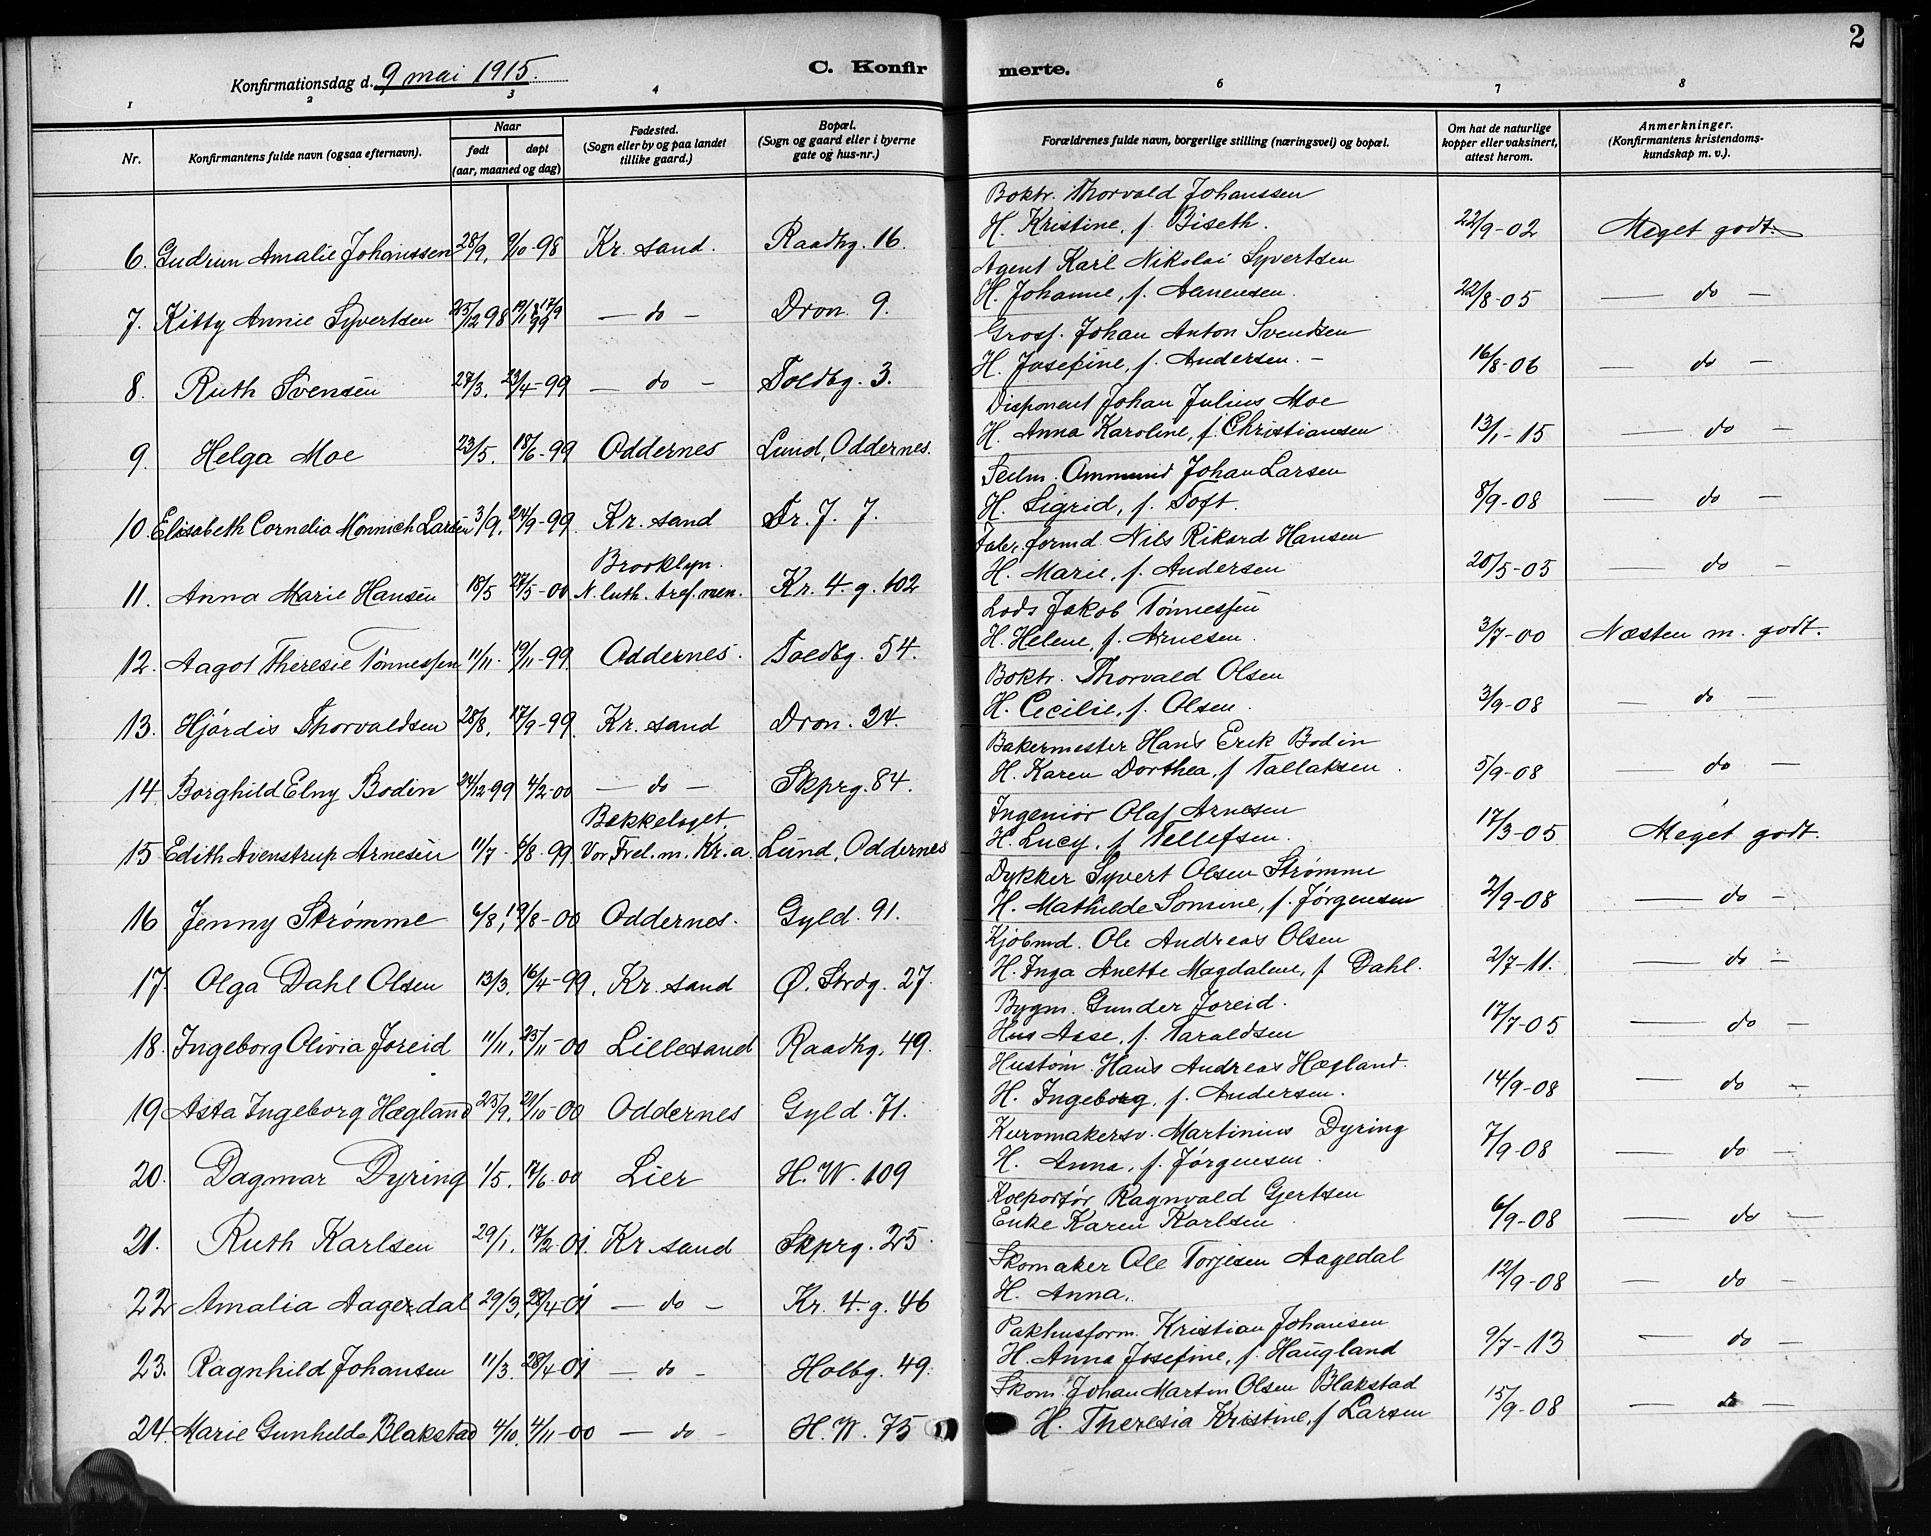 2
Konfirmationsdag d. 9 mai 1915.
C. Konfirmerte.
1 2 3 4 6 7 8
Nr. Konfirmantens fulde navn (ogsaa efternavn). Naar født døpt (aar, maaned og dag) Fødested. (Sogn eller by og paa landet tillike gaard.) Bopæl. (Sogn og gaard eller i byerne gate og hus-nr.) Forældrenes fulde navn, borgerlige stilling (næringsvei) og bopæl. Om hat de naturlige kopper eller vaksinert, attest herom. Anmerkninger. (Konfirmantens kristendoms-kundskap m. v.).
Boktr. Thorvald Johanssen
6. Gudrun Amalie Johanssen 28/9, 9/10-98 Kr. sand. Raadhg. 16. H. Kristine, f. Biseth. 22/9-02 Meget godt.
Agent Karl Nikolai Syvertsen
7. Kitty Annie Syvertsen 25/12 98 17/9 99 — do — Dron. 9. H. Johanne, f. 22/8-05 — do —
Gross. Johan Anton Svendsen
8. Ruth Svensen 27/3, 23/4-99 — do — Toldbg. 3. H. Josefine, f. Andersen. — 16/8-06 — do —
Disponent Johan Julius Moe
9. Helga Moe 23/5, 18/6-99 Oddernes Lund, Oddernes. H. Anna Karoline, f. Christiansen 13/1-15 — do —
Seilm. Ommund Johan Larsen
10. Elisabeth Cornelia Mönnich Larsen 3/9, 24/9-99. Kr. sand Tr. J. 7. H. Sigrid, f. Toft. 8/9-08 — do —
Fabr. formd. Nils Rikard Hansen
11. Anna Marie Hansen 18/5 27/5-00 Brooklyn. N. luth. tref. men. Kr. 4. g. 102 H. Marie, f. Andersen 20/5-05 — do —
Lods Jakob Tönnessen
12. Aagot Theresie Tönnessen 11/11- 19/11-99 Oddernes. Toldbg. 54. H. Helene, f. Arnesen. 3/7-00 Næsten m. godt.
Boktr. Thorvald Olsen
13. Hjördis Thorvaldsen 28/8, 17/9-99. Kr. sand Dron. 24. H. Cecilie, f. Olsen. 3/9-08 — do —
Bakermester Hans Erik Bodin
14. Borghild Elny Bodin 24/12-99 4/2-00 — do — Skprg. 84. H. Karen Dorthea, f. Tallaksen. 5/9-08 — do —
Ingeniör Olaf Arnesen
15 Edith Avenstrup Arnesen 11/7- 6/8-99 Bekkelaget. Vor Frel. m. Kr.a. Lund, Oddernes H. Lucy, f. Tellefsen. 17/3-05 Meget godt.
Dykker Syvert Olsen Strømme
16 Jenny Strømme 6/8, 19/8-00 Oddernes. Gyld. 91. H. Mathilde Somine, f. Jørgensen 2/9-08 — do —
Kjöbmd. Ole Andreas Olsen
17. Olga Dahl Olsen 13/3. 16/4-99. Kr. sand Ø. Strdg. 27. H. Inga Anette Magdalene, f. Dahl. 2/7-11. — do —
Bygm. Gunder Joreid.
18. Ingeborg Olivia Joreid 11/11, 25/11-00 Lillesand Raadhg. 49. Hus Asse, f. Taraldsen 17/7-05 — do —
Hustöm. Hans Andreas Hægland.
19 Asta Ingeborg Hægland 25/9. 21/10-00 Oddernes Gyld. 71. H. Ingeborg, f. Andersen. 14/9-08 — do —
Kurvmakersv. Martinius Dyring
20. Dagmar Dyring 1/5. 17/6.00 Lier H. W. 109 H. Anna, f. Jørgensen. 7/9-08 — do —
Kolportör Ragnvald Gjertsen
21. Ruth Karlsen 29/1. 17/2-01 Kr. sand Skprg. 25. Enke Karen Karlsen 6/9-08 — do —
Skomaker Ole Torjesen Aagedal
22 Amalia Aagedal 29/3. 28/4-01 — do — Kr. 4. g. 46 H. Anna. 12/9-08 — do —
Pakhusform. Kristian Johansen
23. Ragnhild Johansen 11/3. 28/4-01 — do — Holbg. 49. H. Anna Josefine, f. Haugland 9/7-13 — do —
Skom. Johan Martin Olsen Blakstad
24. Marie Gunhilde Blakstad 4/10. 4/11-00 — do — H. W. 75 H. Theresia Kristine, f. Larsen 15/9-08 — do —